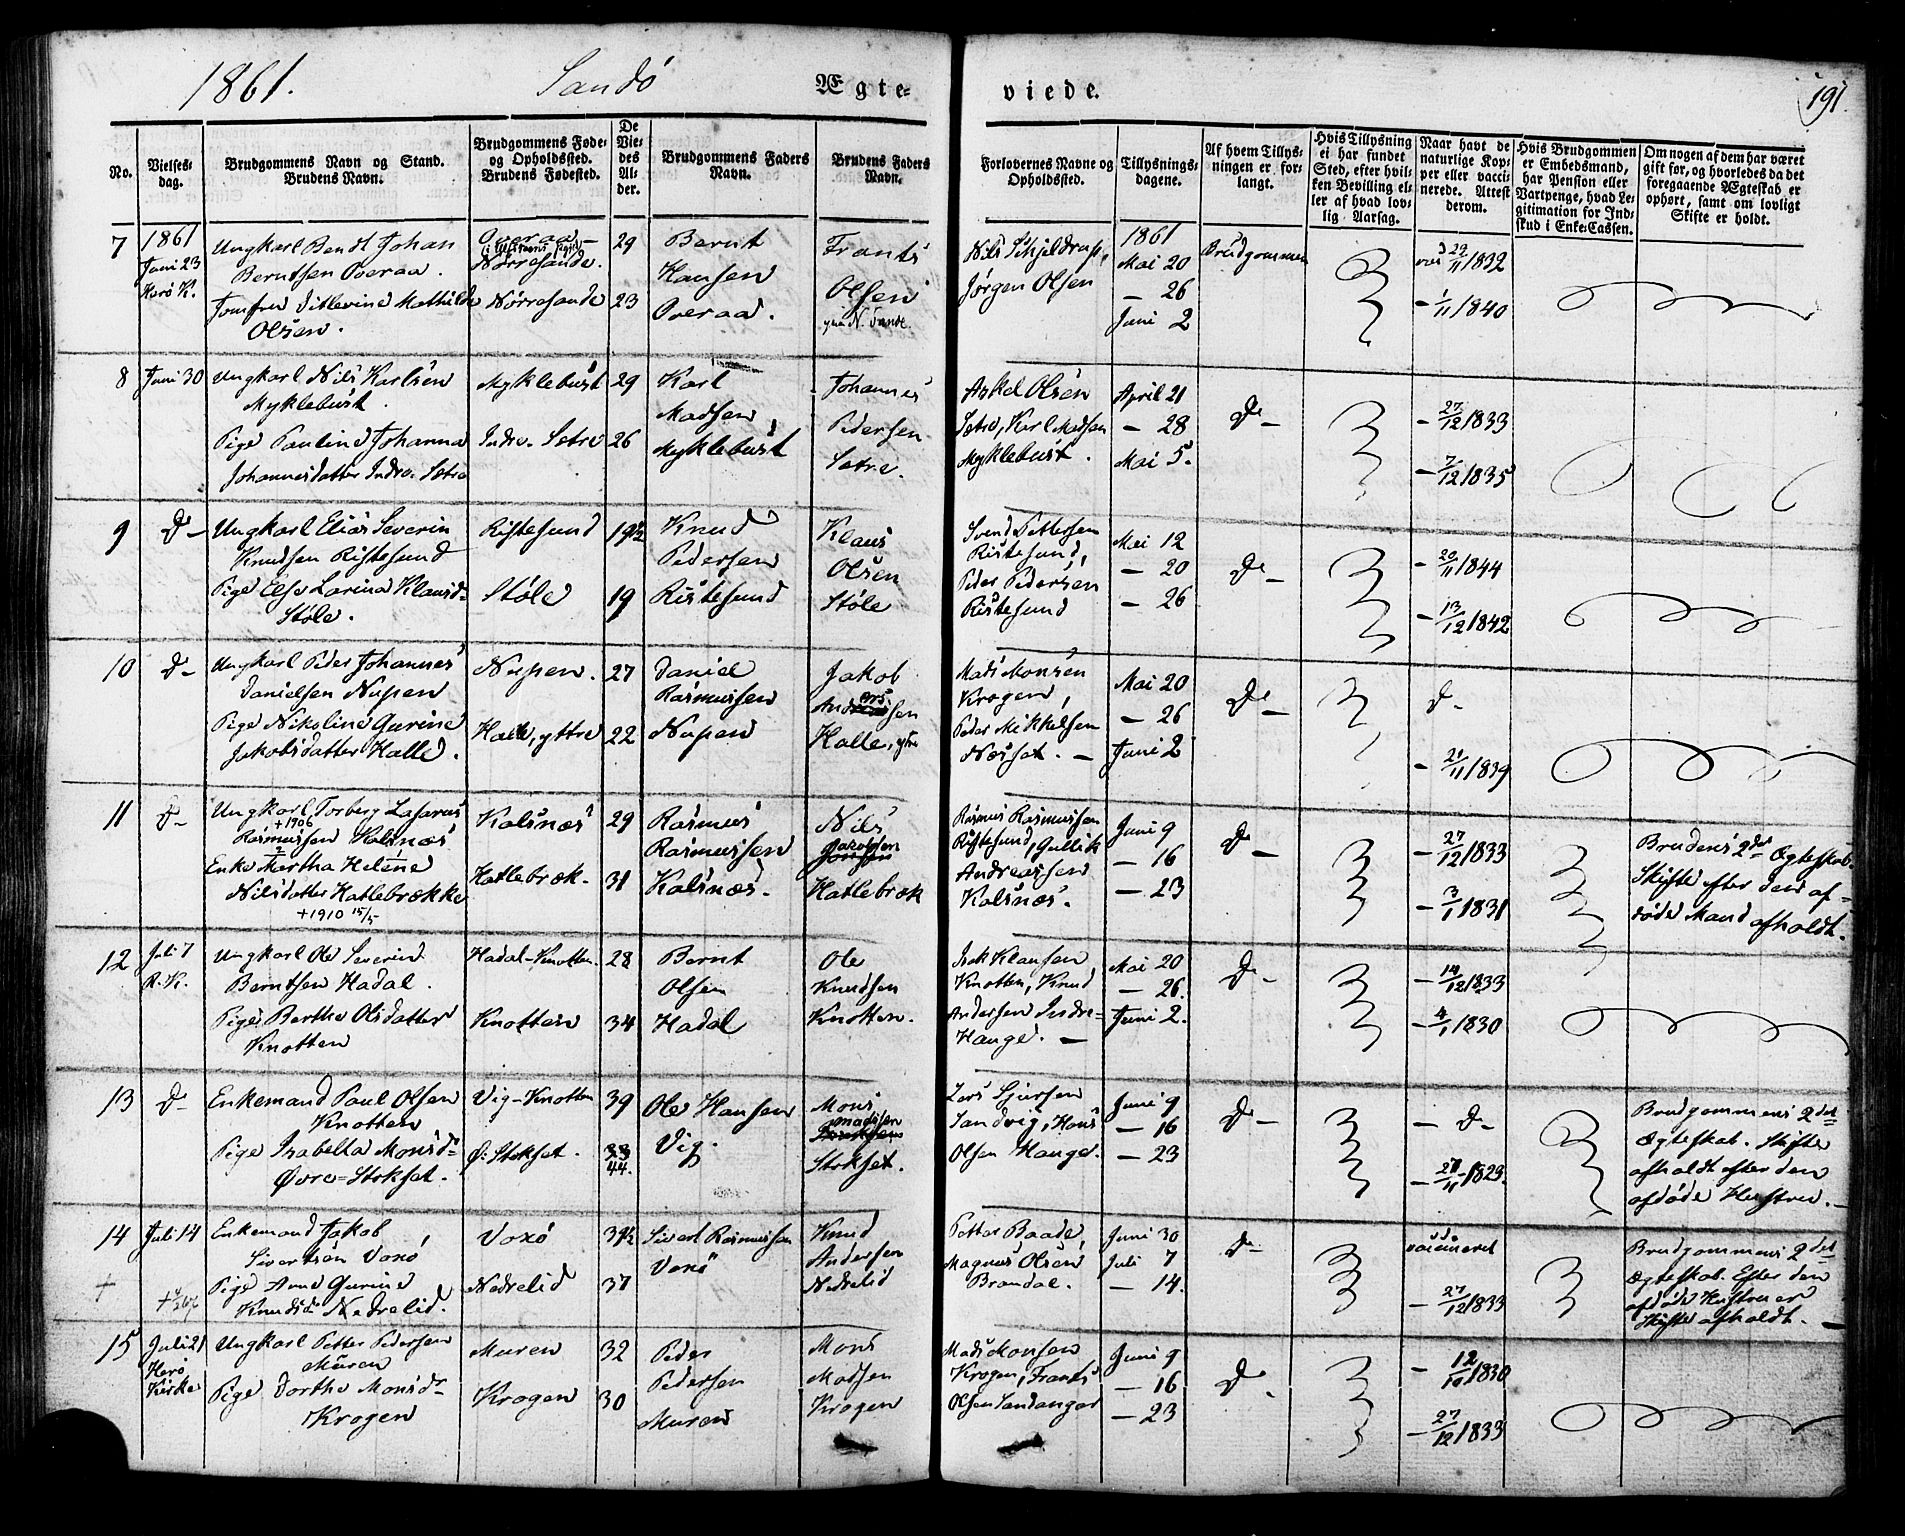 1861.
Sandö
Ægte-
viede.
191.
No.
Vielses-
dag.
Brudgommens Navn og Stand.
Brudens Navn.
Brudgommens Føde-
og Opholdssted.
Brudens Fødested.
De
Vie-
des
Al-
der.
Brudgommens Faders
Navn.
Brudens Faders
Navn.
Forlovernes Navne og
Opholdssted.
Tillysnings-
dagene.
Af hvem Tillys-
ningen er for-
langt.
Hvis Tillysning
ei har fundet
Sted, efter hvil-
ken Bevilling el-
ler af hvad lov-
lig Aarsag.
Naar havt de
naturlige Kop-
per eller vacci-
nerede. Atteste
derom.
Hvis Brudgommen
er Embedsmand,
har Pension eller
Vartpenge, hvad Le-
gitimation for Ind-
skud i Enke-Cassen.
Om nogen af dem har været
gift før, og hvorledes da det
foregaaende Ægteskab er
ophørt, samt om lovligt
Skifte er holdt.
7
1861
Juni 23
Herö K.
Ungkarl Bendt Johan
Berntsen Overaa.
Jomfru Ditlevine Mathilde
Olsen.
Overaa
Nörresande.
Nörresande
29
23
Bernt
Hansen
Overaa.
Frants
Olsen
N. Sande.
Nils Schjeldrup,
Jørgen Olsen
1861
Mai 20
— 26
Juni 2
Brudgommen
29/11 1832
— 1/11 1840
8
Juni 30
Ungkarl Nils Karlsen
Myklebust.
Pige Pauline Johanna
Johannesdatter Indre-Sætre
Myklebust
Indre-Sætre
29
26
Karl
Madsen
Myklebust
Johannes
Pedersen
Sætre.
Askel Olsen
Sætre, Karl Madsen
Myklebust.
April 21
— 28
Mai 5.
D —
— 27/12 1833
— 7/12 1835
9
D —
Ungkarl Elias Severin
Knudsen Ristesund
Pige Else Larina Klausd-
Støle.
Ristesund
Støle
19½
19
Knud
Pedersen
Ristesund
Klaus
Olsen
Støle
Svend Pettersen
Ristesund,
Peder Pedersen
Ristesund
Mai 12
— 20
— 26
D —
— 20/11 1844
— 13/12 1842
10
D —
Ungkarl Peder Johannes
Danielsen Nupen
Pige Nikoline Gurine
Jakobsdatter Halle.
Nupen.
Halle, yttre
27
22
Daniel
Rasmussen
Nupen
Jakob
Andersen
Halle, ytre
Mads Monsen
Krogen,
Peder Mikkelsen
Næsset. —
Mai 20
— 26
Juni 2
D —
D —
— 21/11 1839
11
D —
Ungkarl Torberg Lasarus
+ 1906
Rasmussen Kalsnæs
Enke Martha Helene
Nilsdatter Hatlebrække
+ 1910 15/5
Kalsnæs
Hatlebræk.
29
31
Rasmus
Rasmussen
Kalsnæs.
Nils
Jakobsen
Hatlebræk
Rasmus Rasmussen
Ristesund, Gullik
Andreassen
Kalsnæs.
Juni 9
— 16
— 23
D —
— 27/12 1833
— 3/1 1831
Brudens 2det Ægteskab.
Skifte efter den af-
døde Mand afholdt.
12
Juli 7
R. K.
Ungkarl Ole Severin
Berntsen Hadal.
Pige Berthe Olsdatter
Knotten
Hadal-Knotten.
Knotten
28
34
Bernt
Olsen
Hadal
Ole
Knudsen
Knotten.
Isak Klausen
Knotten, Knud
Andersen Indre-
Hauge. —
Mai 20
— 26.
Juni 2.
D —
— 14/12 1833
— 4/1 1830
13
D —
Enkemand Paul Olsen
Knotten
Pige Isabella Monsd-
Øvre-Stokset.
Vig-Knotten
Ø: Stokset.
39
33
44.
Ole Hansen
Vig.
Mons
Madsen
Stokset.
Lars Sjursen
Sandvig, Hans
Olsen Hauge.
Juni 9
— 16
— 23
D —
— D —
— 27/11 1823.
Brudgommens 2det
Ægteskab. Skifte
afholdt efter den
afdøde Hustru. —
14
Juli 14
Enkemand Jakob
Sivertsen Voxö
Pige Ane Gurine
Knudsd. Nedrelid.
Voxö
Nedrelid
39½
37
Sivert Rasmussen
Voxö
Knud
Andersen
Nedrelid
Petter Baade,
Magnus Olsen
Brandal.
Juni 30
Juli 7
— 14.
D —
vaccineret
— 27/12 1833
Brudgommens 2det
Ægteskab. Efter den
afdøde Hustru er
Skifte afholdt. —
15
Juli 21
Herö
Kirke
Ungkarl Petter Pedersen
Muren
Pige Dorthe Monsdr-
Krogen
Muren
Krogen
32
30
Peder
Pedersen
Muren
Mons
Madsen
Krogen
Mads Monsen
Krogen, Frants
Olsen Sandanger
Juni 9
— 16
— 23
D —
— 12/10 1830
— 27/12 1833